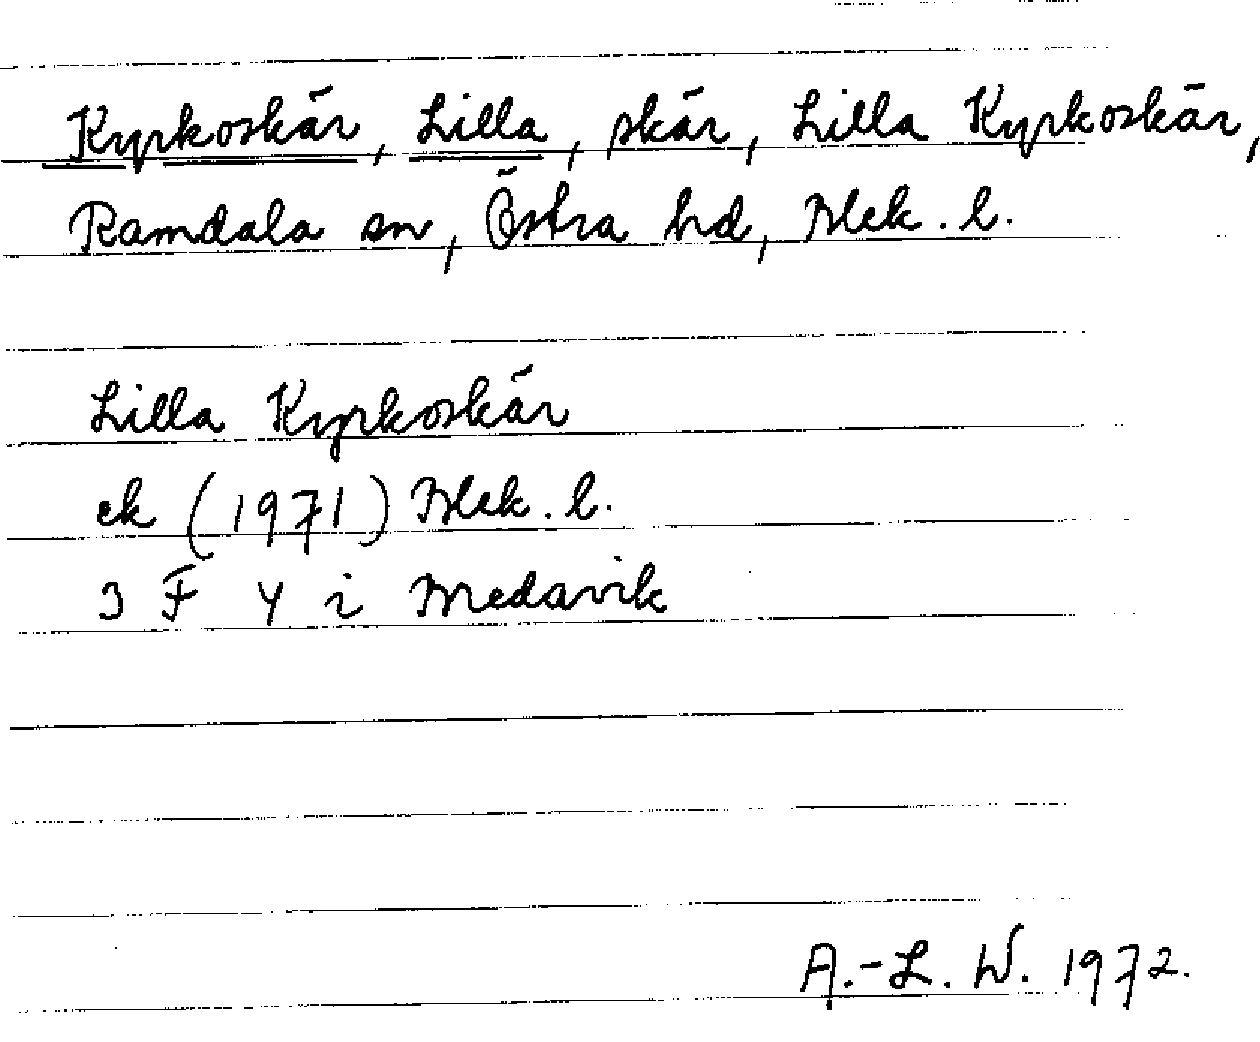 Kyrkoskär, Lilla, skär, Lilla Kyrkoskär,
Ramdala sn, Östra hd, Blek. l.
Lilla Kyrkoskär
ek (1971) Blek. l.
3 F Y i Medavik
A.-L. W. 1972.